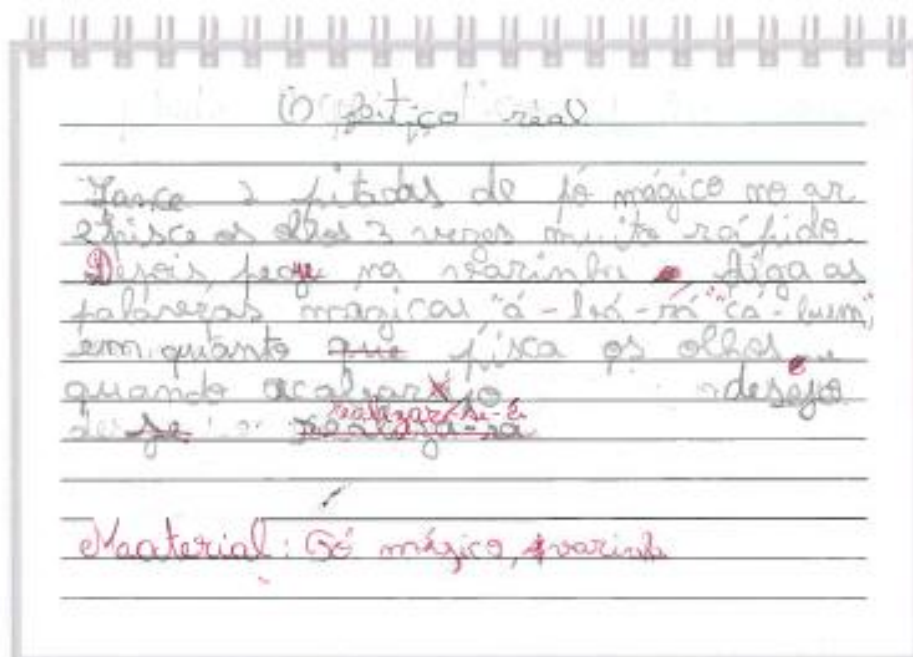 O feitiço real
Lance 2 pitadas de pó mágico no ar
e pisce os olhos 3 vezes muito rápido.
Depois, pegue na varinha, diga as
palavras mágicas "á-brá-rá" "cá-bum",
em quanto que pisca os olhos e
quando acabar o desejo
realizar-se-á
Material: Pó mágico, varinha